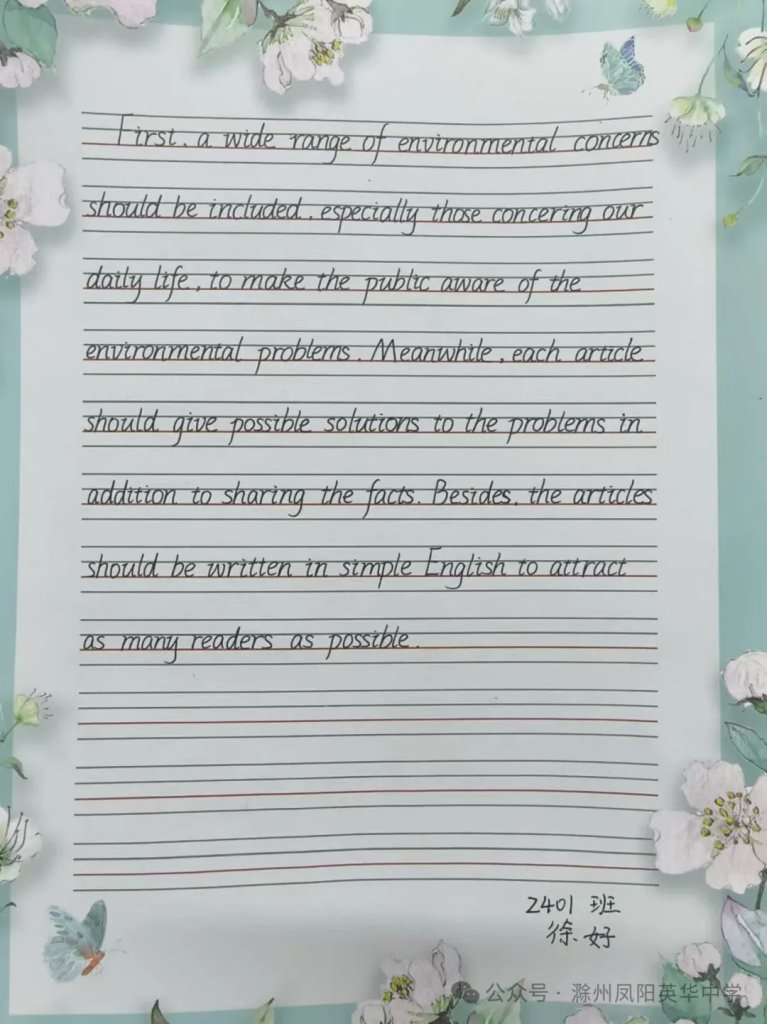 First, a wide range of environmental concerns
should be included, especially those concering our
daily life, to make the public aware of the
environmental problems. Meanwhile, each article
should give possible solutions to the problems in
addition to sharing the facts. Besides, the articles
should be written in simple English to attract
as many readers as possible.
2401 班
徐好
公众号·滁州凤阳英华中学